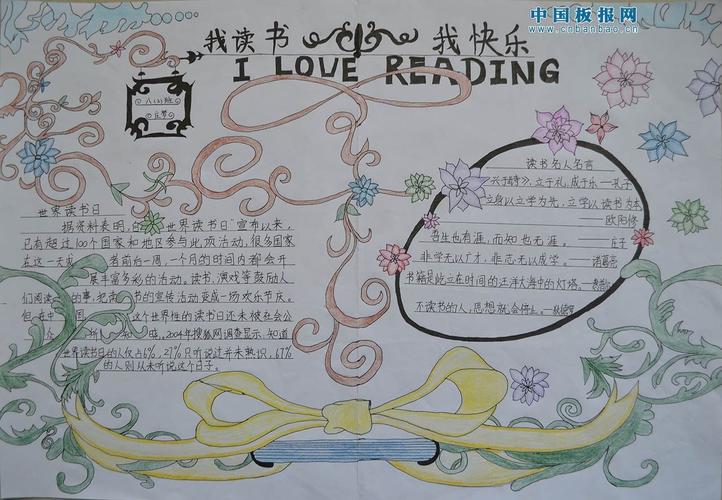 中国板报网
www.cnbanbao.cn
我读书 我快乐
I LOVE READING
八(2)班
世界读书日
据资料表明,自"世界读书日"宣布以来,
已有超过100个国家和地区参与此项活动,很多国家
在这一天或 者前后一周、一个月的时间内都会开
展丰富多彩的活动。读书、演戏等鼓励人
们阅读 的事,把 书的宣传活动变成一场欢乐节庆。
但在中 国 这个世界性的读书日还未被在会公
2004年搜狐网调查显示:知道
世界读书日的人仅占6%,27%只听说过并未熟识,67%
的人则从未听说这个日子。
读书名人名言
兴于诗,立于礼,成于乐——孔子
立身以立学为先,立学以读书为本
——欧阳修
吾生也有涯,而知也无涯。——庄子
非学无以广才,非志无以成学。——诸葛亮
书籍是屹立在时间的汪洋大海中的灯塔。
不读书的人,思想就会停止。